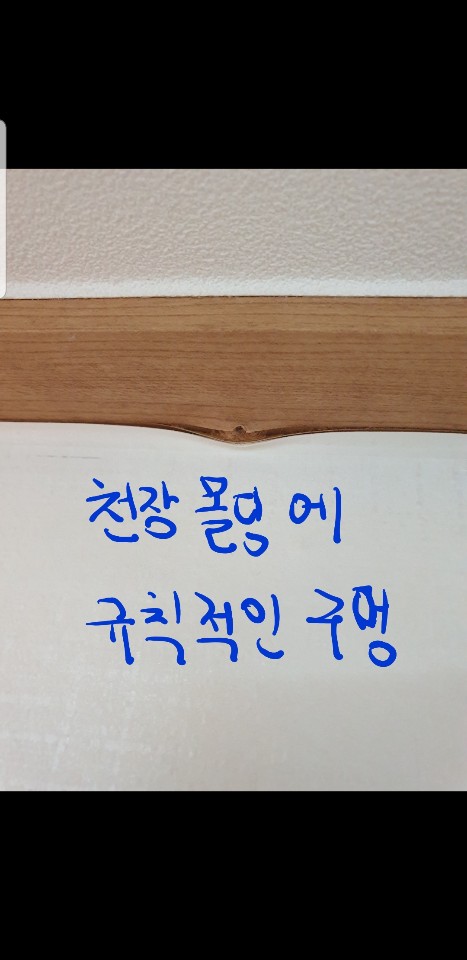 천장 몰딩에
규칙적인 구멍